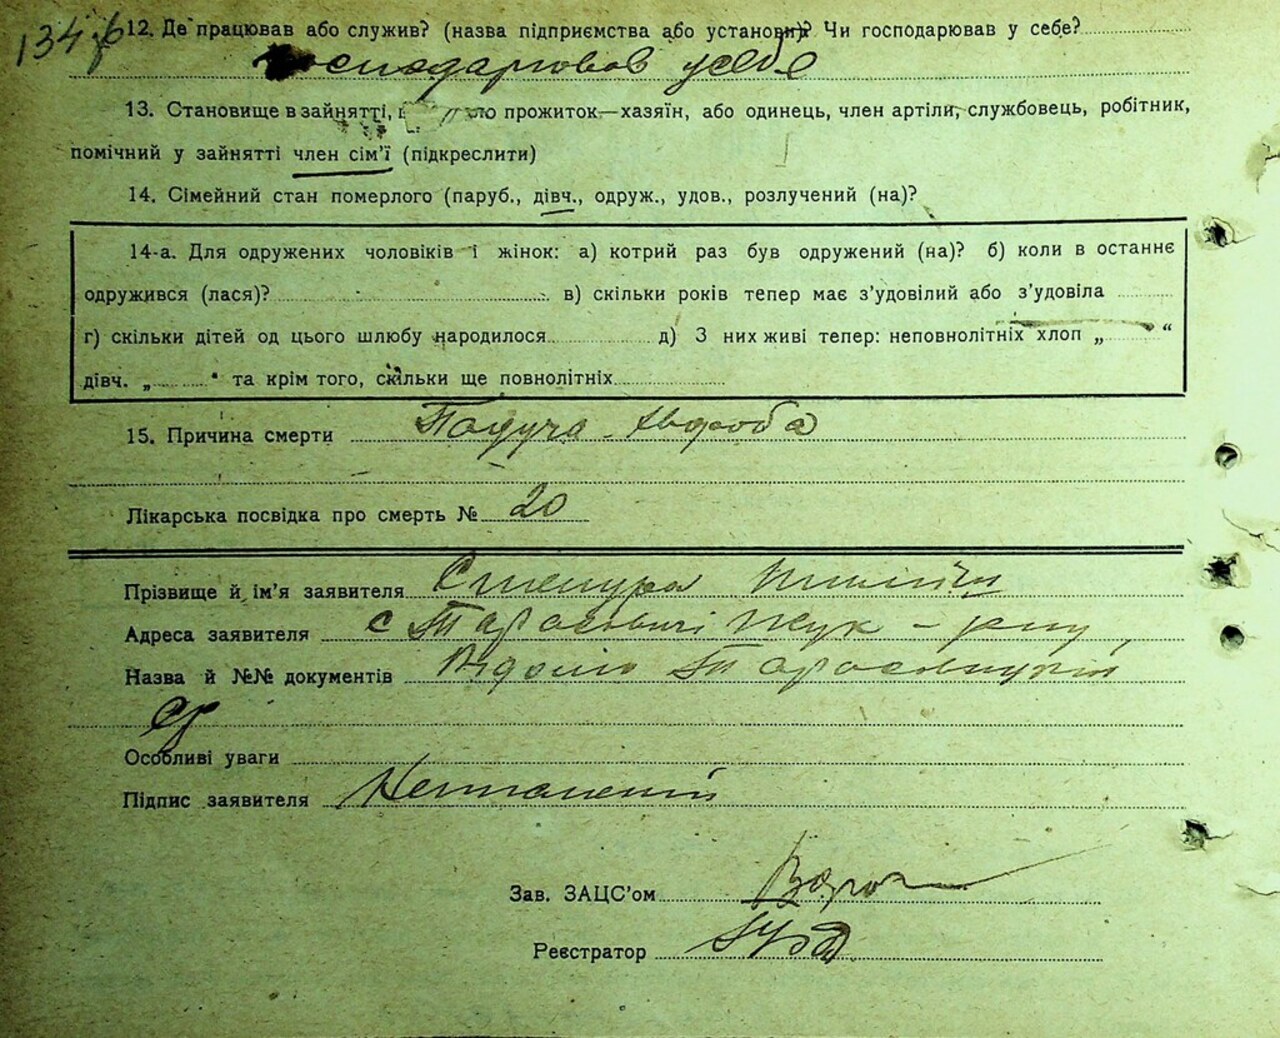 134
12. Де працював або служив? (назва підприємства або установи)? Чи господарював у себе?
господарював у себе
13. Становище в зайнятті, прожиток—хазяїн, або одинець, член артілі, службовець, робітник,
помічний у зайнятті член сім'ї (підкреслити)
14. Сімейний стан померлого (паруб., дівч., одруж., удов., розлучений (на)?
14-а. Для одружених чоловіків і жінок: а) котрий раз був одружений (на)? б) коли в останнє
одружився (лася)? в) скільки років тепер має з'удовілий або з'удовіла
г) скільки дітей од цього шлюбу народилося д) З них живі тепер: неповнолітніх хлоп „ “
дівч. „ “ та крім того, скільки ще повнолітніх
15. Причина смерти Падуча хвороба
Лікарська посвідка про смерть № 20
Прізвище й ім'я заявителя
Адреса заявителя с Тарасовичі Жук - рну
Назва й №№ документів Відомо Тарасовицькій
ср
Особливі уваги
Підпис заявителя Неписьменій
Зав. ЗАЦС'ом
Реєстратор